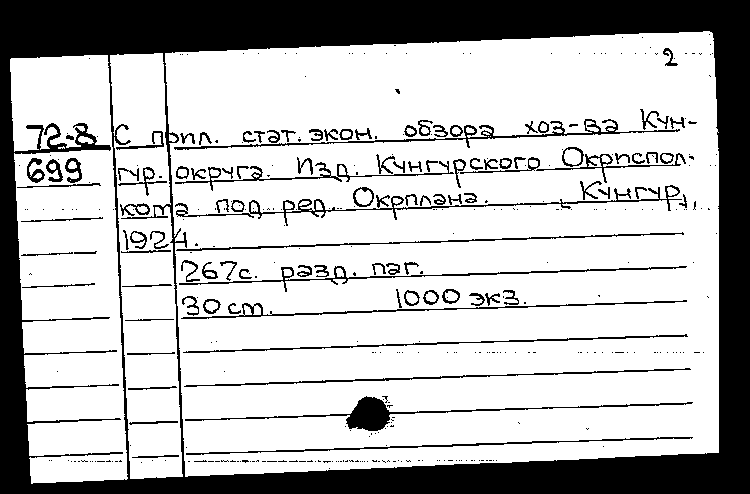 2
72-8 С прил. стат. экон. обзора хоз-ва Кун-
699 гур. округа. Изд. Кунгурского Окрисполкома
кома под ред. Окрплана. [Кунгур],
1924.
267с. разд. паг.
30 cm. 1000 экз.